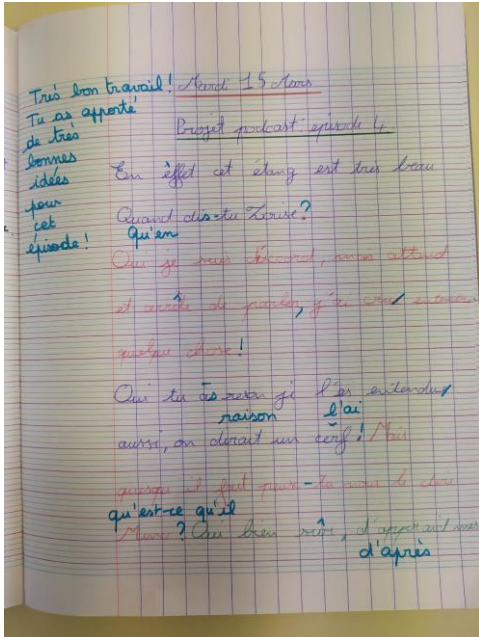 Très bon travail!
Tu as apporté
de très
bonnes
idées
pour
cet
épisode!
Mardi 15 Mars
Projet podcast: épisode 4
En èffet cet étang est très beau
Quand dis-tu Zorise?
Qu'en
Oui je suis d'accord, mas attend
et arrête de parler, j'ai cru entendre
quelque chose!
Oui tu as reson je l'es entendu
raison l'ai
aussi, on dirait un cerf! Mais
il fait -tu nous le dire
qu'est-ce qu'il
? Oui bien sûr, d'apprait mes
d'après